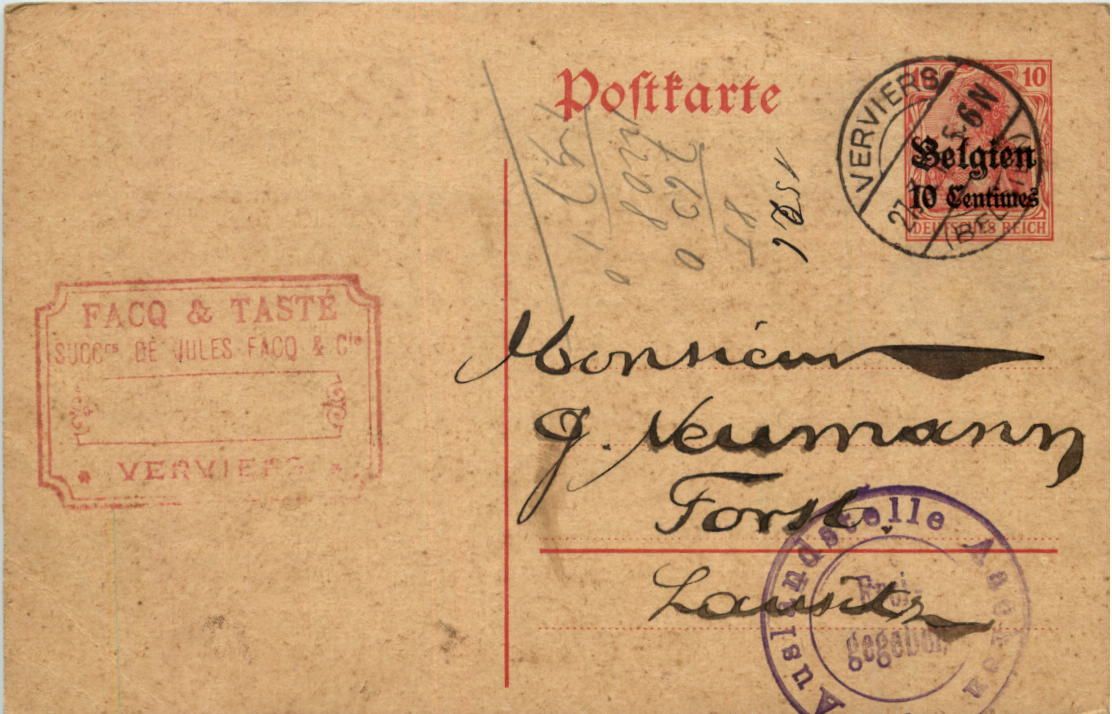 Postkarte
10
Belgien
10 Centimes
DEUTSCHES REICH
VERVIERS
FACQ & TASTÉ
SUCCrs DE JULES FACQ & Cie
VERVIERS
Monsieur
G. Neumann
Forst.
Lausitz
Auslandstelle Aachen
Frei-
gegeben